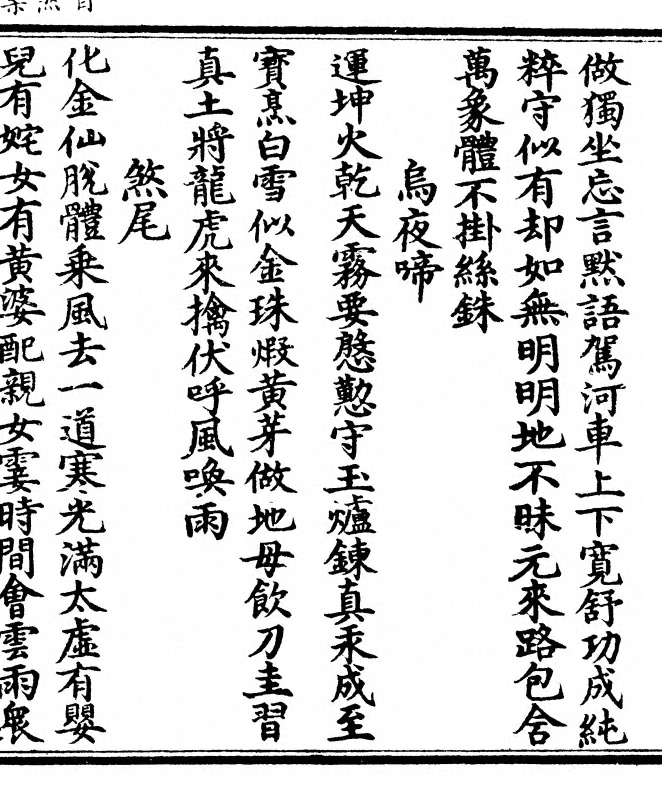 做獨坐忘言默語駕河車上下寬舒功成純
粹守似有却如無明明地不昧元來路包含
萬象體不掛絲銖
烏夜啼
運坤火乾天霧要慇懃守玉爐鍊真汞成至
寶烹白雪似金珠煅黃芽做地母飲刀圭習
真土將龍虎來擒伏呼風喚雨
煞尾
化金仙脫體乘風去一道寒光滿太虛有嬰
兒有姹女有黃婆配親女霎時間會雲雨衆